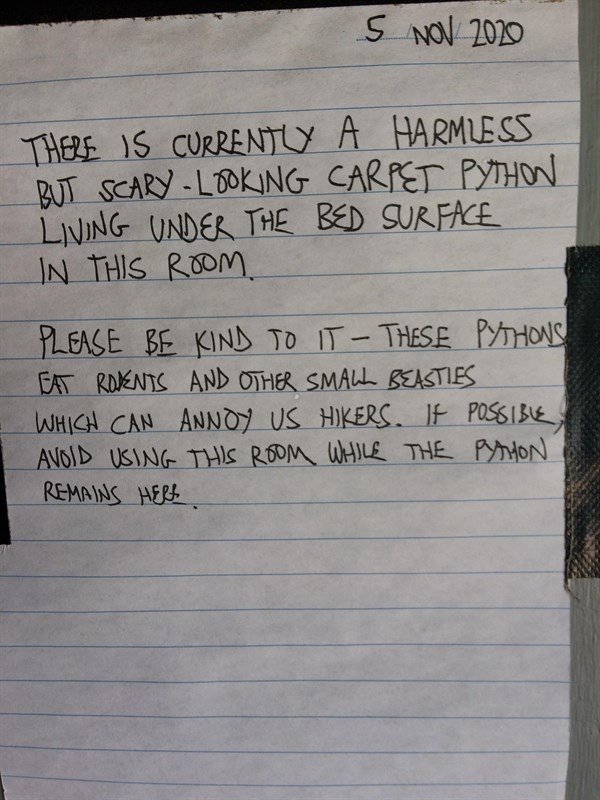 5 NOV 2020
THERE IS CURRENTLY A HARMLESS
BUT SCARY-LOOKING CARPET PYTHON
LIVING UNDER THE BED SURFACE
IN THIS ROOM.
PLEASE BE KIND TO IT - THESE PYTHONS
EAT RODENTS AND OTHER SMALL BEASTIES
WHICH CAN ANNOY US HIKERS. IF POSSIBLE,
AVOID USING THIS ROOM WHILE THE PYTHON
REMAINS HERE.